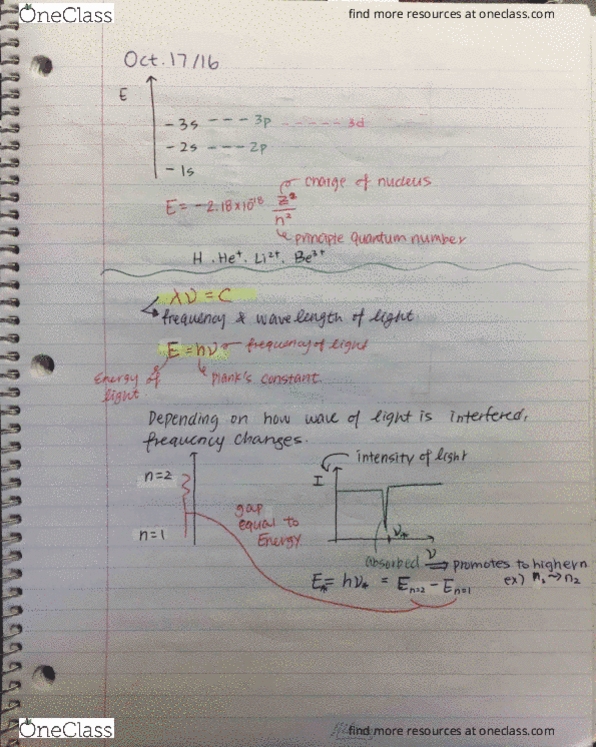 OneClass find more resources at oneclass.com
Oct. 17/16
E
- 3s --- 3p ------ 3d
- 2s --- 2p
- 1s
charge of nucleus
E = -2.18×10^-18 z²/n²
principle quantum number
H, He⁺, Li²⁺, Be³⁺
λν = C
frequency & wavelength of light
E = hν frequency of light
Energy of light
Plank's constant
Depending on how wave of light is interfered,
frequency changes.
n=2
n=1
gap
equal to
Energy
intensity of light
I
ν*
ν
absorbed ⇒ promotes to higher n
ex) n₁ → n₂
E* = hν* = Eₙ₌₂ - Eₙ₌₁
OneClass find more resources at oneclass.com